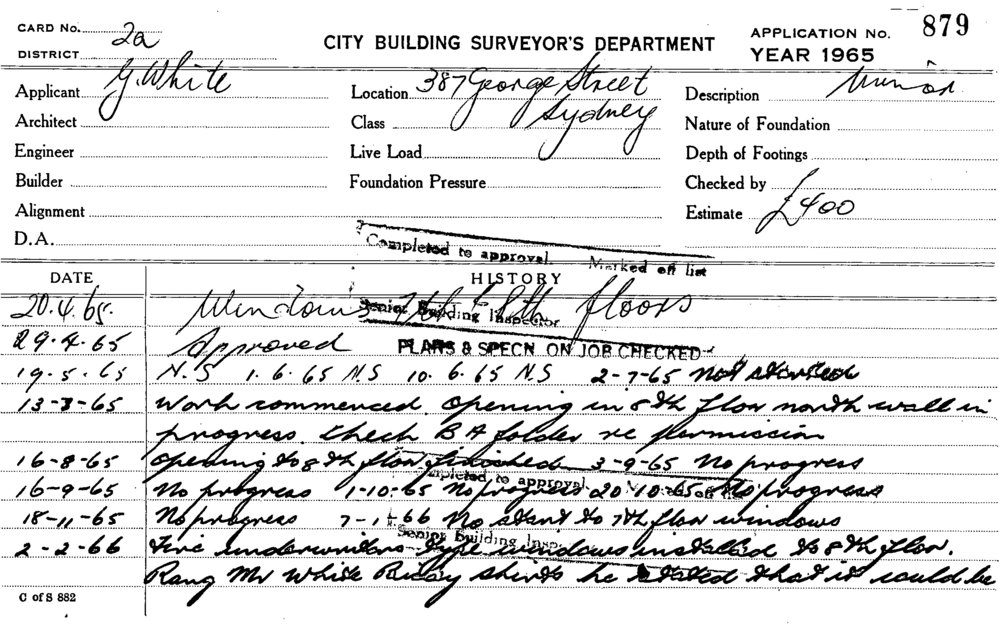 879
CARD No.
DISTRICT 2a
CITY BUILDING SURVEYOR'S DEPARTMENT
APPLICATION No.
YEAR 1965
Applicant G. White
Location 387 George Street
Sydney
Description Minor
Architect
Class
Nature of Foundation
Engineer
Live Load
Depth of Footings
Builder
Foundation Pressure
Checked by
Alignment
Estimate £400
D.A.
Completed to approval. Marked off list
DATE HISTORY
Senior Building Inspector
20.4.65. Windows 7th & 8th floors
29.4.65 Approved PLANS & SPECN ON JOB CHECKED
19.5.65 N.S 1.6.65 N.S 10.6.65 N.S 2-7-65 Not started
13-8-65 Work commenced. Opening in 8th floor north wall in
progress. Check BA folder re permission
16-8-65 Opening to 8th floor finished 3-9-65 No progress
Completed to approval. Marked off list
16-9-65 No progress 1-10-65 No progress 20-10-65 No progress
18-11-65 No progress 7-1-66 No start to 7th floor windows
Senior Building Insp.
2-2-66 Fire underwriters type windows installed to 8th floor.
Rang Mr White shirts he stated that it would be
C of S 882